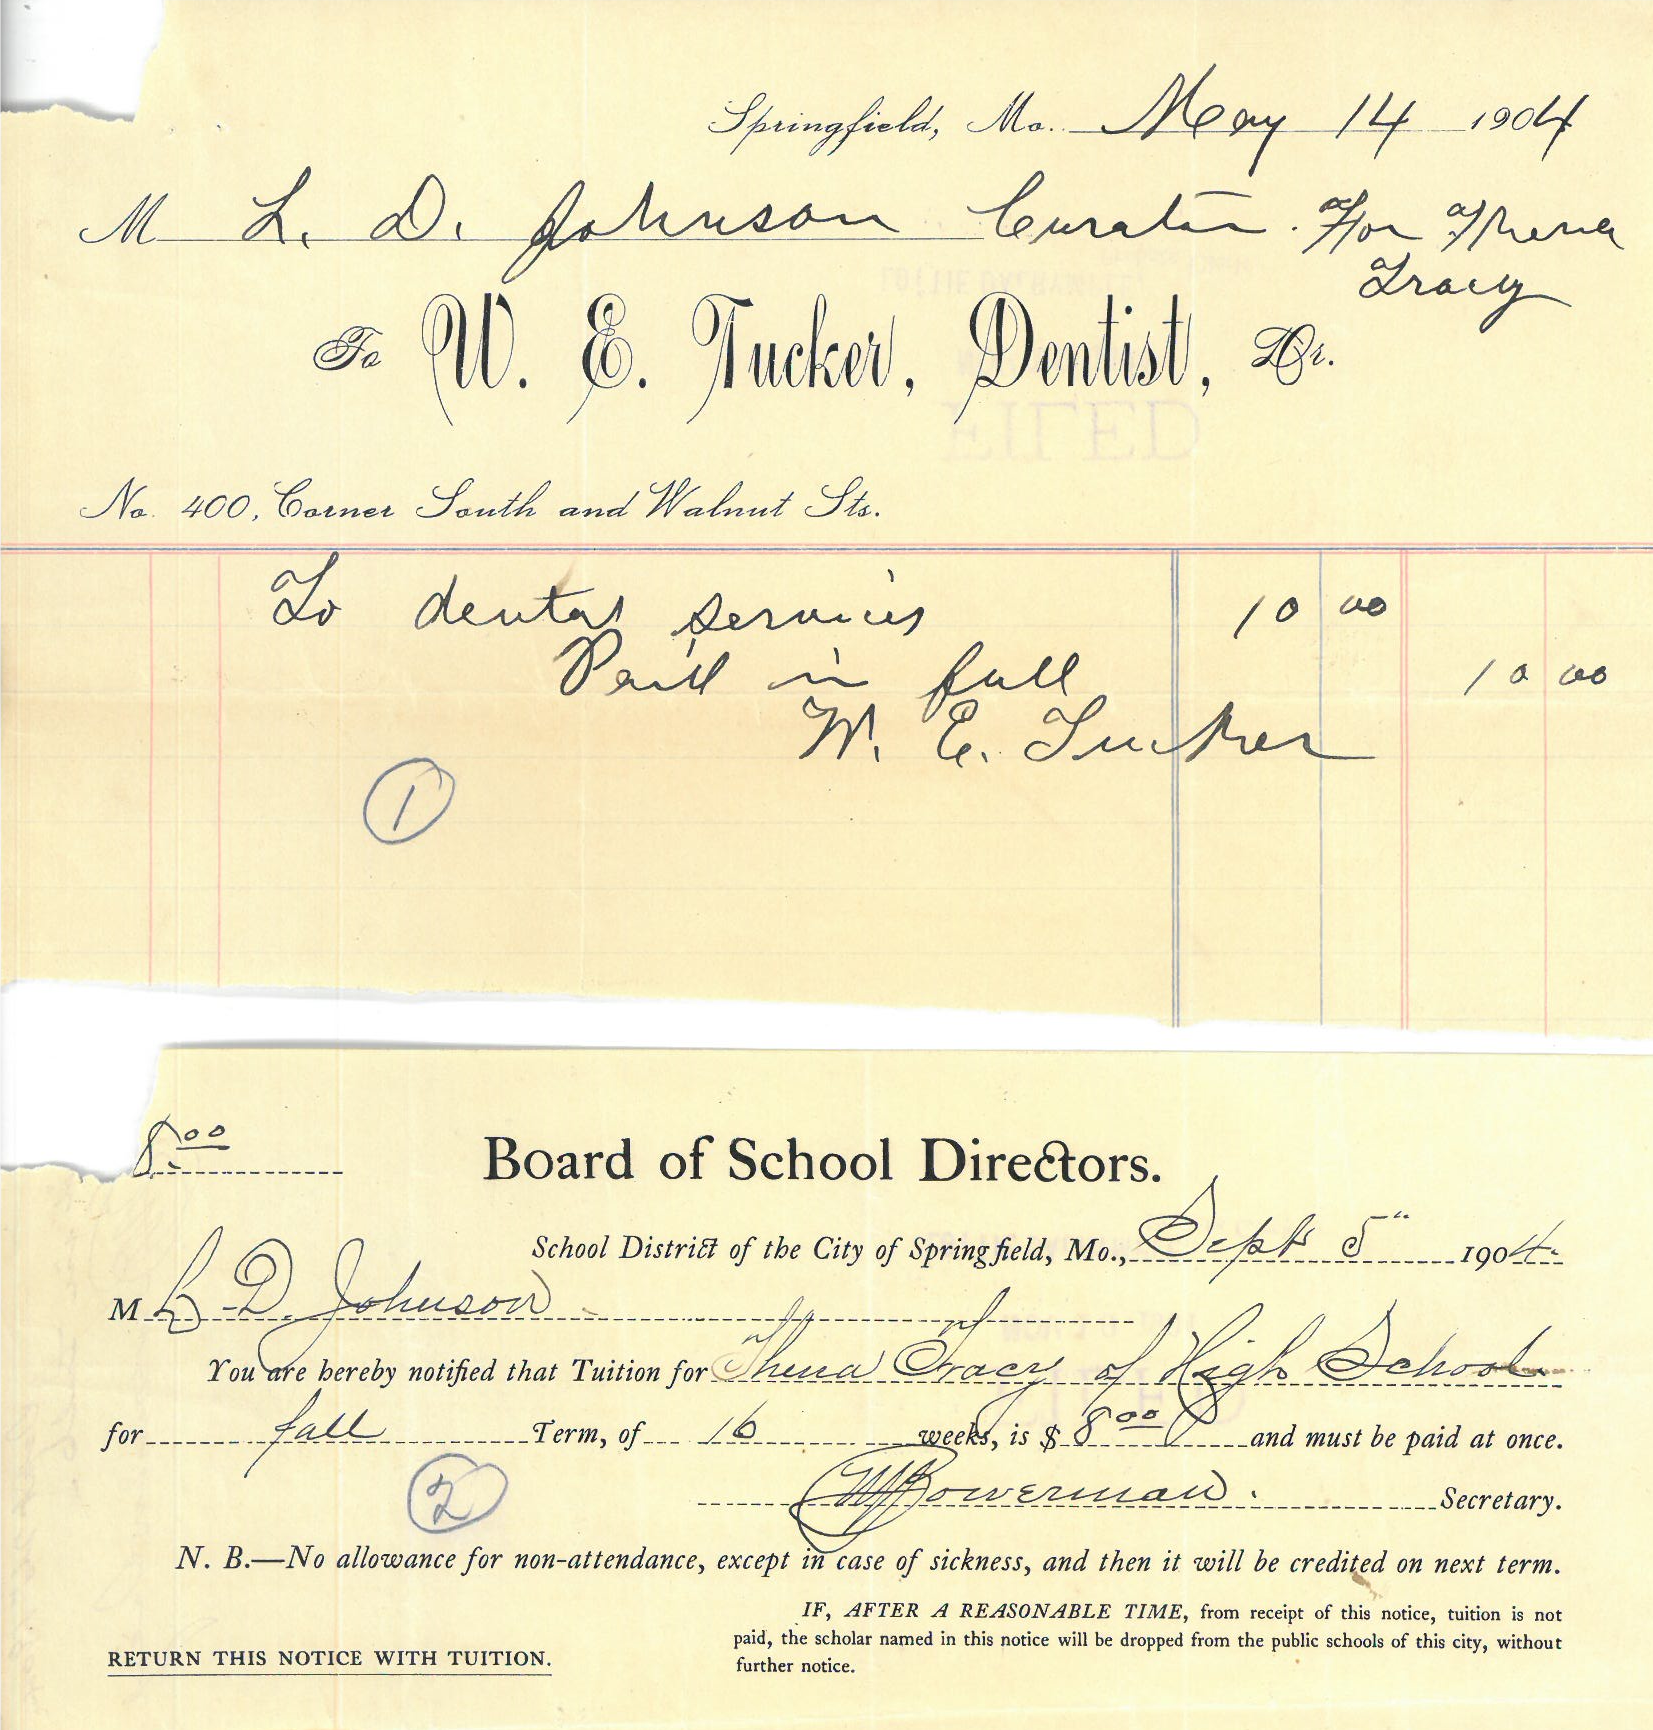 Springfield, Mo. May 14 1904
M L. D. Johnson Curator. For Thena
Tracy
To W. E. Tucker, Dentist, Dr.
FILED
No. 400, Corner South and Walnut Sts.
To dental services 10 00
Paid in full 10 00
W. E. Tucker
1
8.00
Board of School Directors.
School District of the City of Springfield, Mo., Sept 5" 1904.
M L D. Johnson
You are hereby notified that Tuition for Thena Tracy of High School
for fall Term, of 16 weeks, is $ 8.00 and must be paid at once.
2
Bowerman. Secretary.
N. B.—No allowance for non-attendance, except in case of sickness, and then it will be credited on next term.
IF, AFTER A REASONABLE TIME, from receipt of this notice, tuition is not
paid, the scholar named in this notice will be dropped from the public schools of this city, without
further notice.
RETURN THIS NOTICE WITH TUITION.